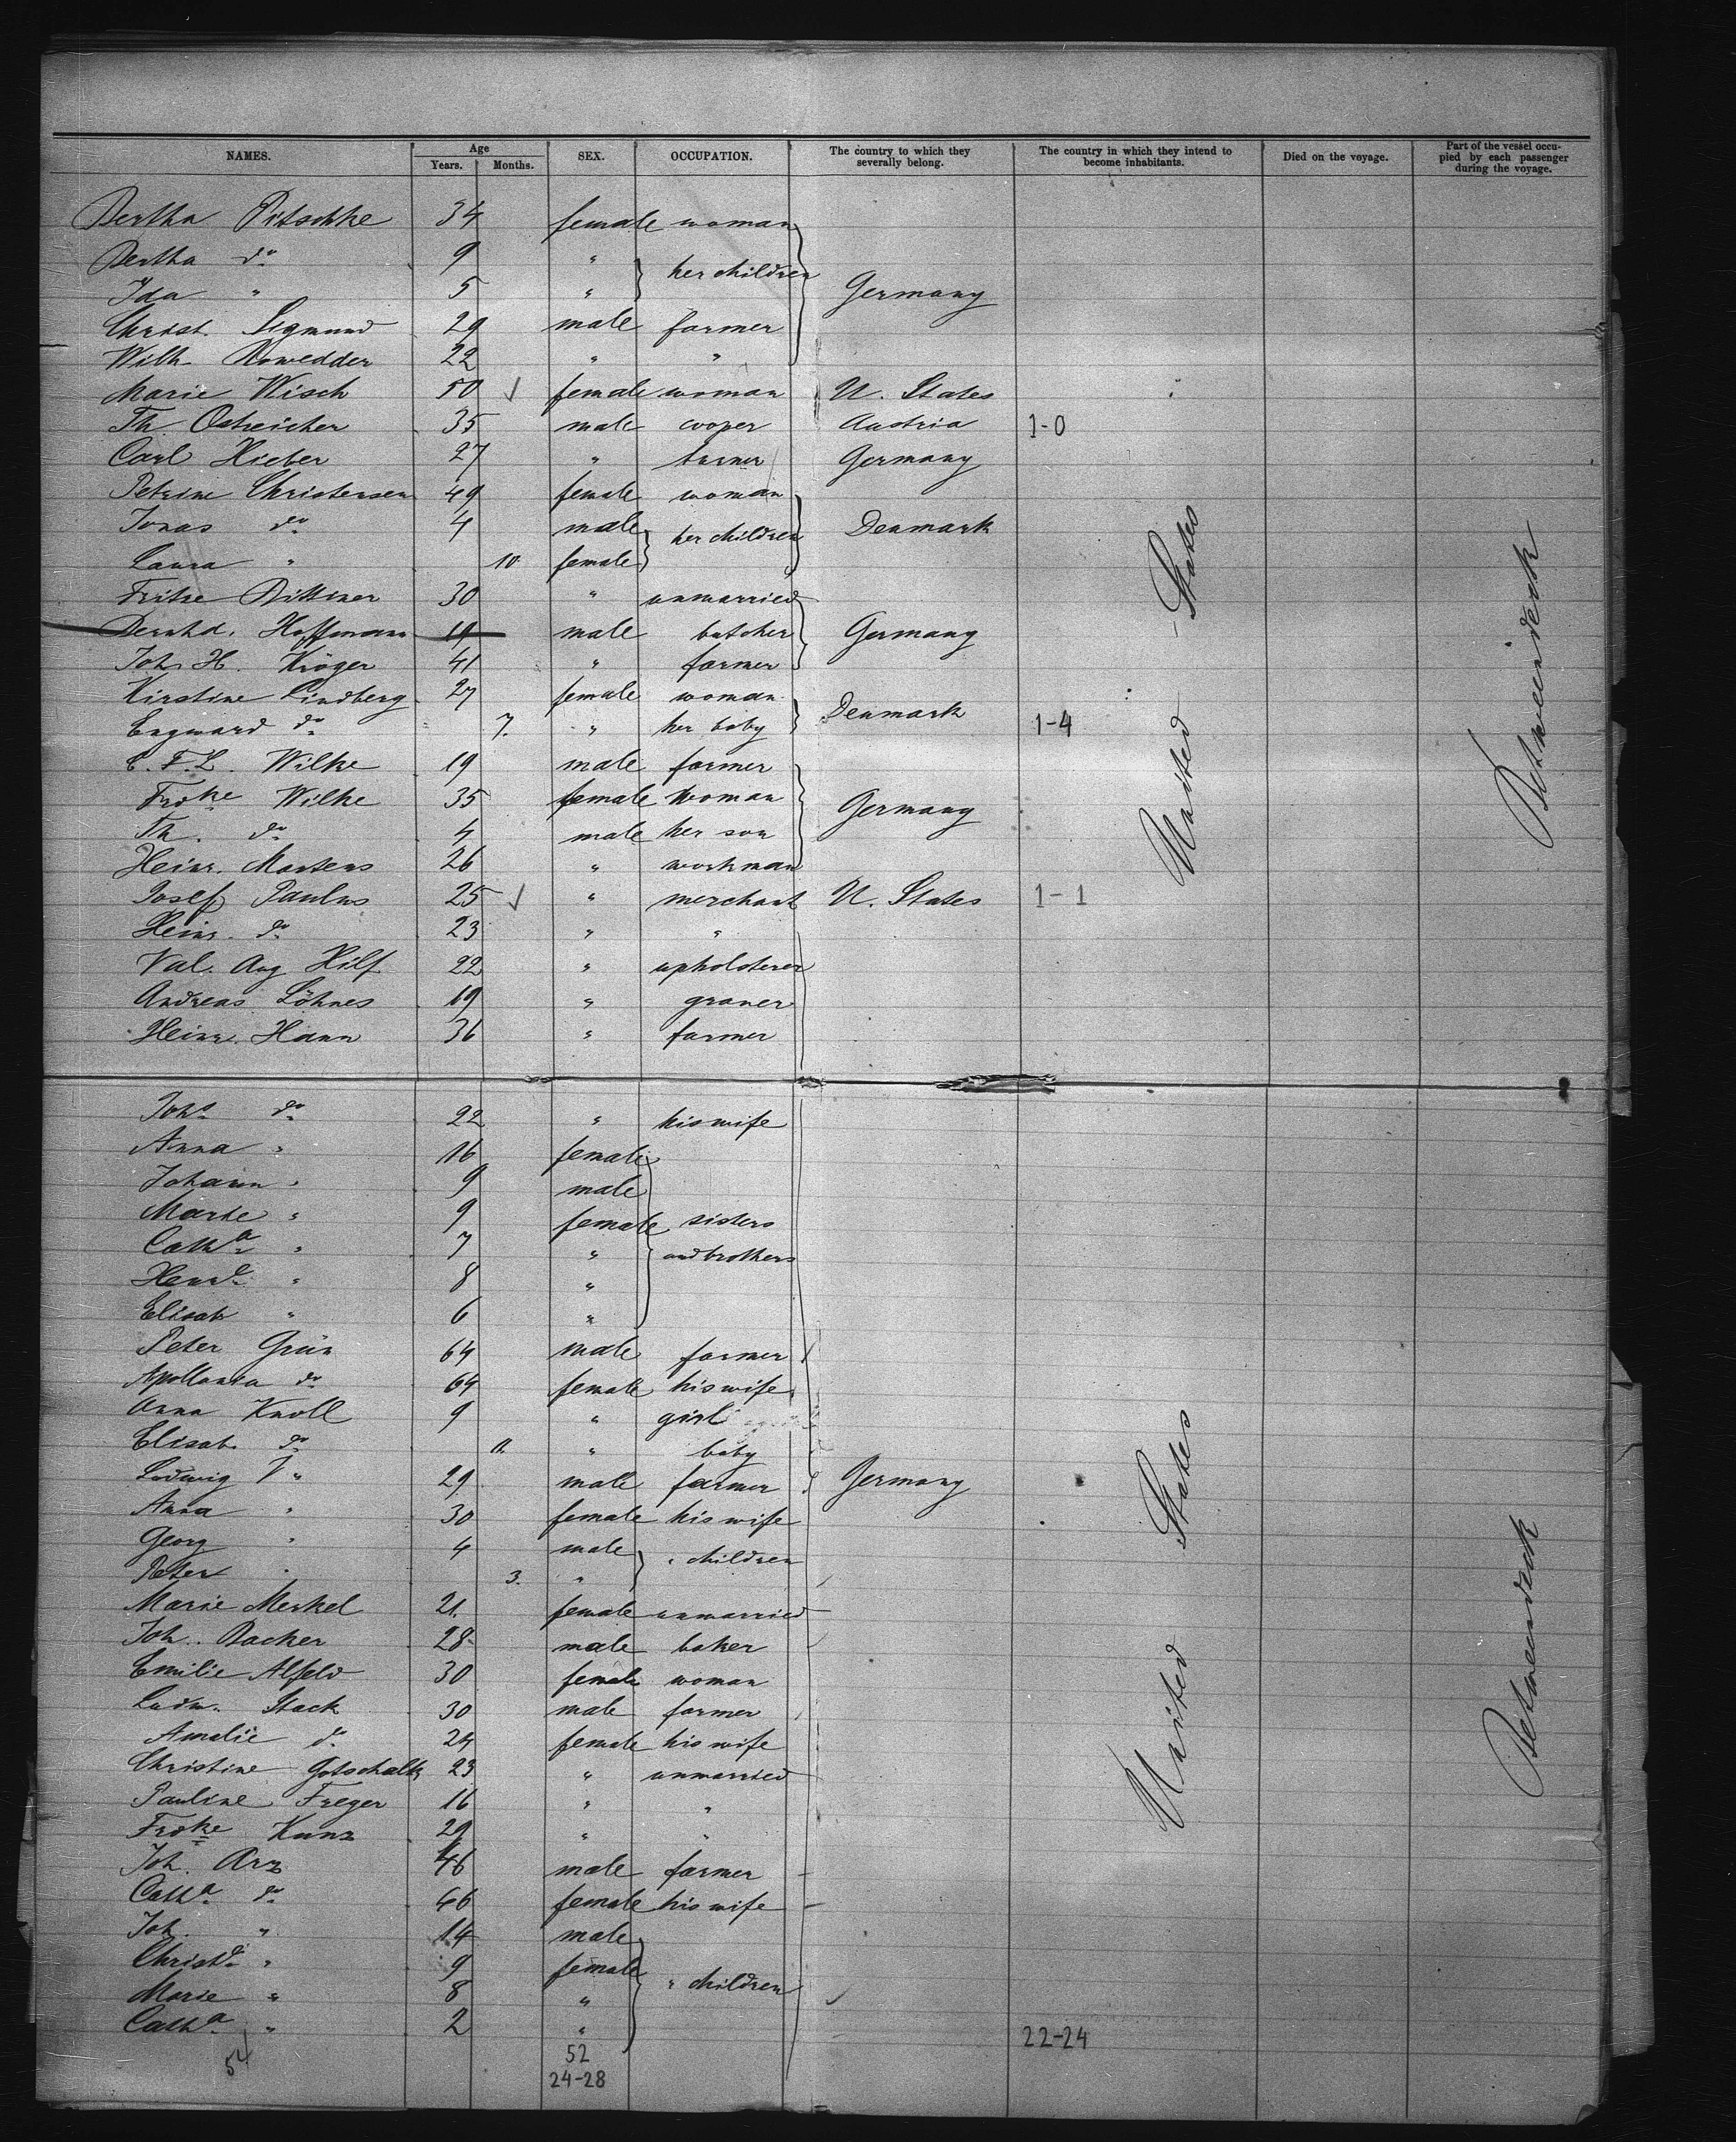 NAMES. Age Years. Months. SEX. OCCUPATION. The country to which they severally belong. The country in which they intend to become inhabitants. Died on the voyage. Part of the vessel occupied by each passenger during the voyage.
Bertha Pitschke 34 female woman
Bertha do 9 " her children
Ida " 5 " Germany
Christ. Sigmund 29 male farmer
Wilh. Rowedder 22 " "
Marie Wisch 50 ✓ female woman U. States
Th. Ostreicher 35 male cooper Austria 1-0
Carl Hieber 27 " turner Germany
Petrine Christensen 49 female woman
Jonas do 4 male her children Denmark
Laura " 10 female
Fritze Bittner 30 " unmarried
Bernhd. Hoffmann 19 male butcher Germany
Joh. H. Kröger 41 " farmer
Kirstine Lindberg 27 female woman Denmark
Engward do 7. " her baby 1-4
C. F. L. Wilke 19 male farmer
Frdke Wilke 35 female woman Germany
Th. do 4 male her son
Heinr. Martens 26 " workman
Josef Paulus 25 ✓ " merchant U. States 1-1
Heinr. do 23 " "
Val. Aug Hilf 22 " upholsterer
Andreas Löhnes 19 " graver
Heinr. Hann 36 " farmer
United States
Betweendeck
Joh. do 22 " his wife
Anna " 16 female
Johann " 9 male
Marie " 9 female sisters
Cath.a " 7 " and brothers
" 8 "
Elisab " 6 "
Peter Grün 64 male farmer
Apollonia do 64 female his wife
Anna Knoll 9 " girl
Elisab. do 11. " baby
Ludwig V " 29 male farmer Germany
Anna " 30 female his wife
Georg " 4 male " children
Peter " 3. "
Marie Merkel 21. female unmarried
Joh. Backer 28 male baker
Emilie Alfeld 30 female woman
Ludw. Stack 30 male farmer
Amalie do 24 female his wife
Christine Gotschalk 23 " unmarried
Pauline Freger 16 " "
Frdke Kunz 29 " "
Joh. Arz 46 male farmer
Cath.a do 46 female his wife
Joh. " 14 male
Christ.e " 9 female " children
Marie " 8 "
Cath.a " 2 "
United States
Betweendeck
54 52 22-24
24-28